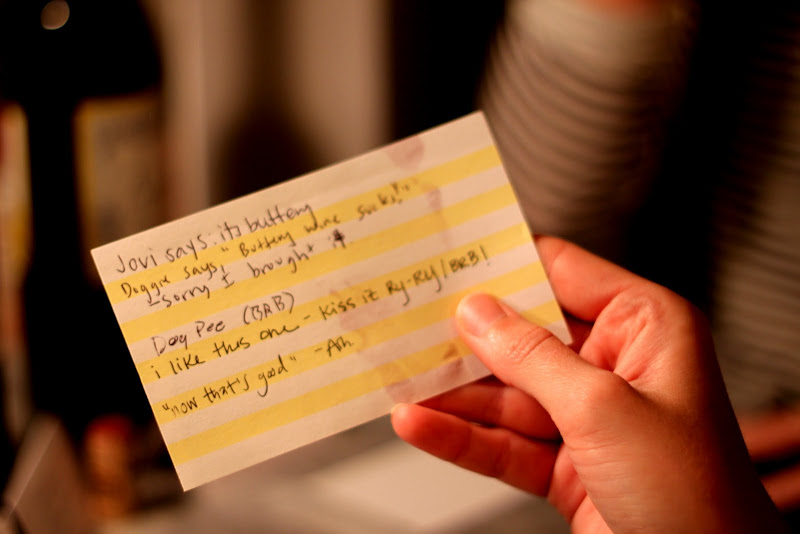 Jovi says: its buttery
Doggie says, "Buttery wine sucks!"
- sorry I brought it.
Dog Pee (BRB)
i like this one - Kiss it Ry-Ry/BRB!
"now that's good" - Ah